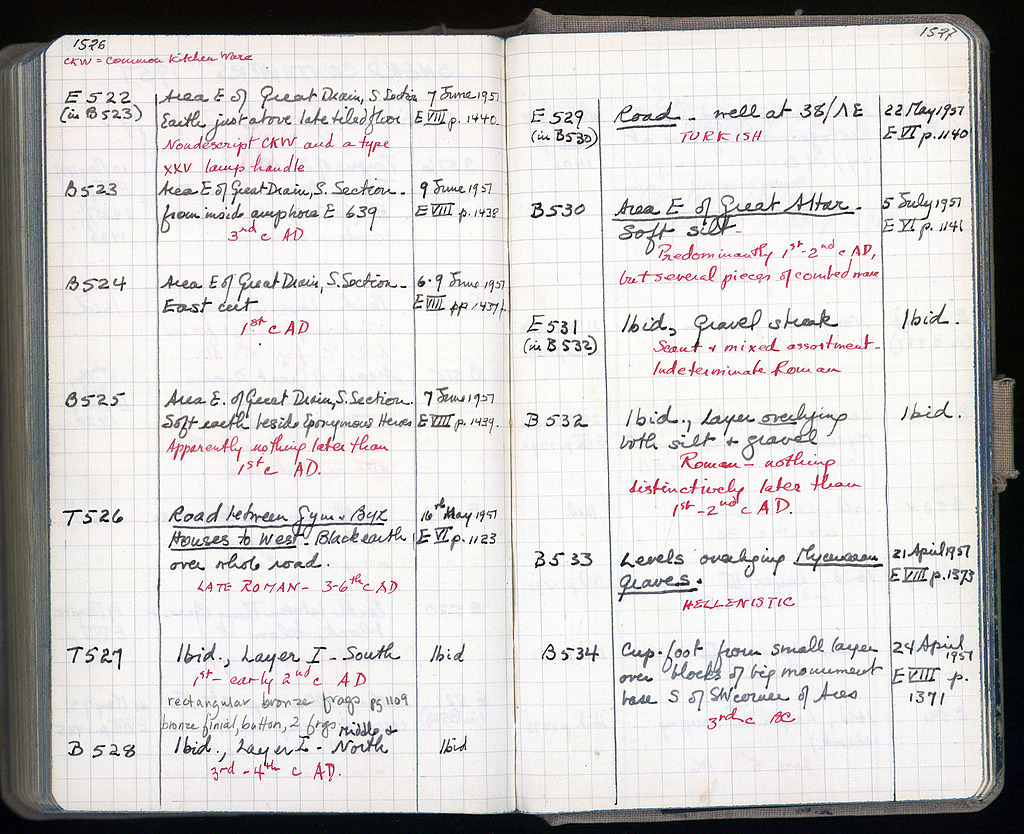 1526
CKW = Common Kitchen Ware
E 522 Area E of Great Drain, S. Section 7 June 1951
(in B 523) Earth just above late tiled floor E VIII p. 1440.
Nondescript CKW and a type
XXV lamp handle
B 523 Area E of Great Drain, S. Section. 9 June 1951
from inside amphora E 639 E VIII p. 1438
3rd c AD
B 524 Area E of Great Drain, S. Section 6-9 June 1951
East cut E VIII pp 1437f.
1st c AD
B 525 Area E. of Great Drain, S. Section. 7 June 1951
Soft earth beside Eponymous Heroes E VIII p. 1439.
Apparently nothing later than
1st c AD.
T 526 Road between Gym. & Byz 16th May 1951
Houses to West. Black earth E VI p. 1123
over whole road.
LATE ROMAN - 3-6th c AD
T 527 Ibid., Layer I - South Ibid
1st - early 2nd c AD
rectangular bronze frags pg 1109
bronze finial, button, 2 frgs.
middle &
B 528 Ibid., Layer I - North Ibid
3rd - 4th c AD.
1527
E 529 Road - well at 38/ΛΕ 22 May 1951
(in B 530) TURKISH E VI p. 1140
B 530 Area E of Great Altar. 5 July 1951
Soft silt - E VI p. 1141
Predominantly 1st-2nd c AD,
but several pieces of combed ware
E 531 Ibid, gravel streak Ibid.
(in B 532) Scant & mixed assortment.
Indeterminate Roman
B 532 Ibid., Layer overlying Ibid.
both silt & gravel
Roman - nothing
distinctively later than
1st - 2nd c AD.
B 533 Levels overlying Mycenaean 21 April 1951
graves. E VIII p. 1373
HELLENISTIC
B 534 Cup-foot from small layer 24 April 1951
over blocks of big monument E VIII p.
base S of SW corner of Ares 1371
3rd c BC